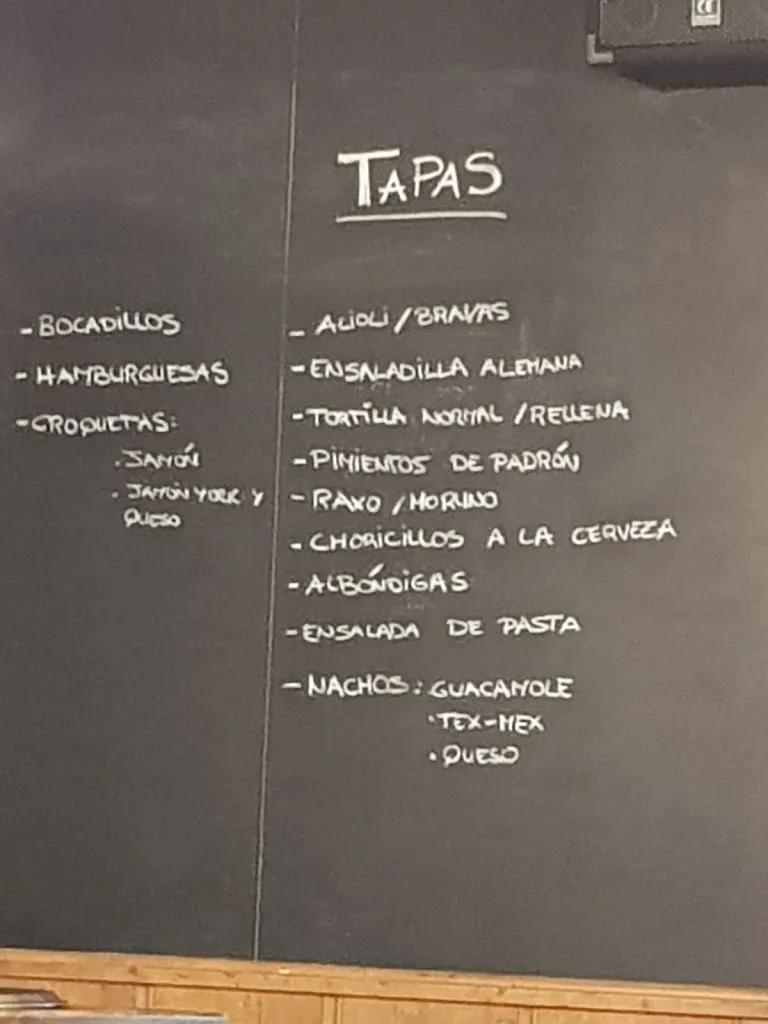 TAPAS
- BOCADILLOS
- HAMBURGUESAS
- CROQUETAS:
. JAMÓN
. JAMÓN YORK Y
QUESO
- ALIOLI / BRAVAS
- ENSALADILLA ALEMANA
- TORTILLA NORMAL / RELLENA
- PIMIENTOS DE PADRÓN
- RAXO / MORUNO
- CHORICILLOS A LA CERVEZA
- ALBÓNDIGAS
- ENSALADA DE PASTA
- NACHOS: GUACAMOLE
. TEX-MEX
. QUESO
CE